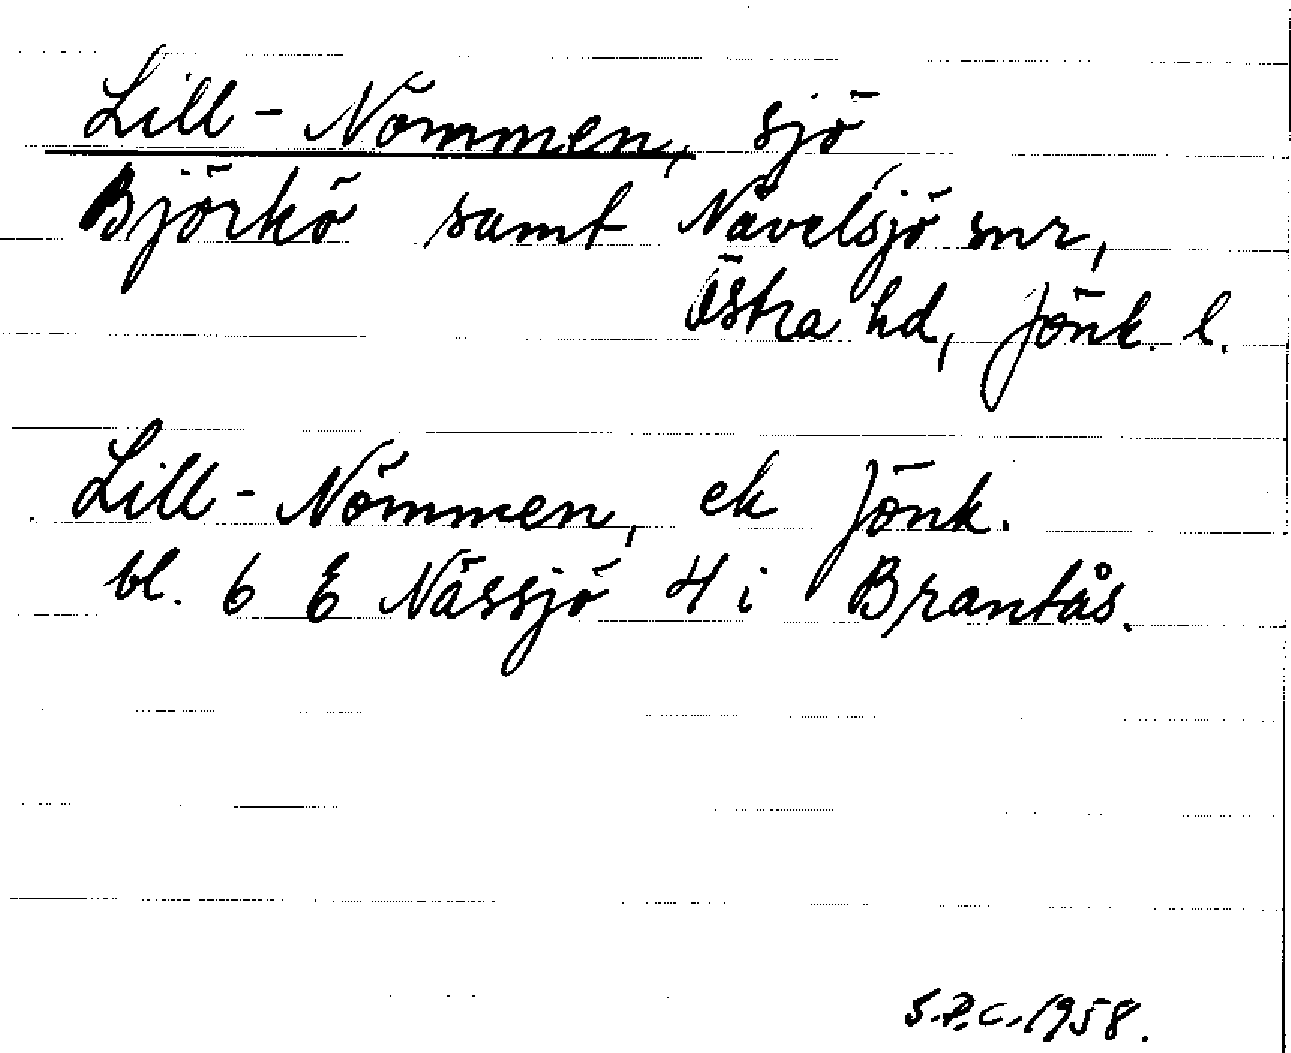 Lill-Nömmen, sjö
Björkö samt Nävelsjö snr,
Östra hd, Jönk. l.
Lill-Nömmen, ek Jönk.
bl. 6 E Nässjö 4 i Brantås.
S.P.C. 1958.